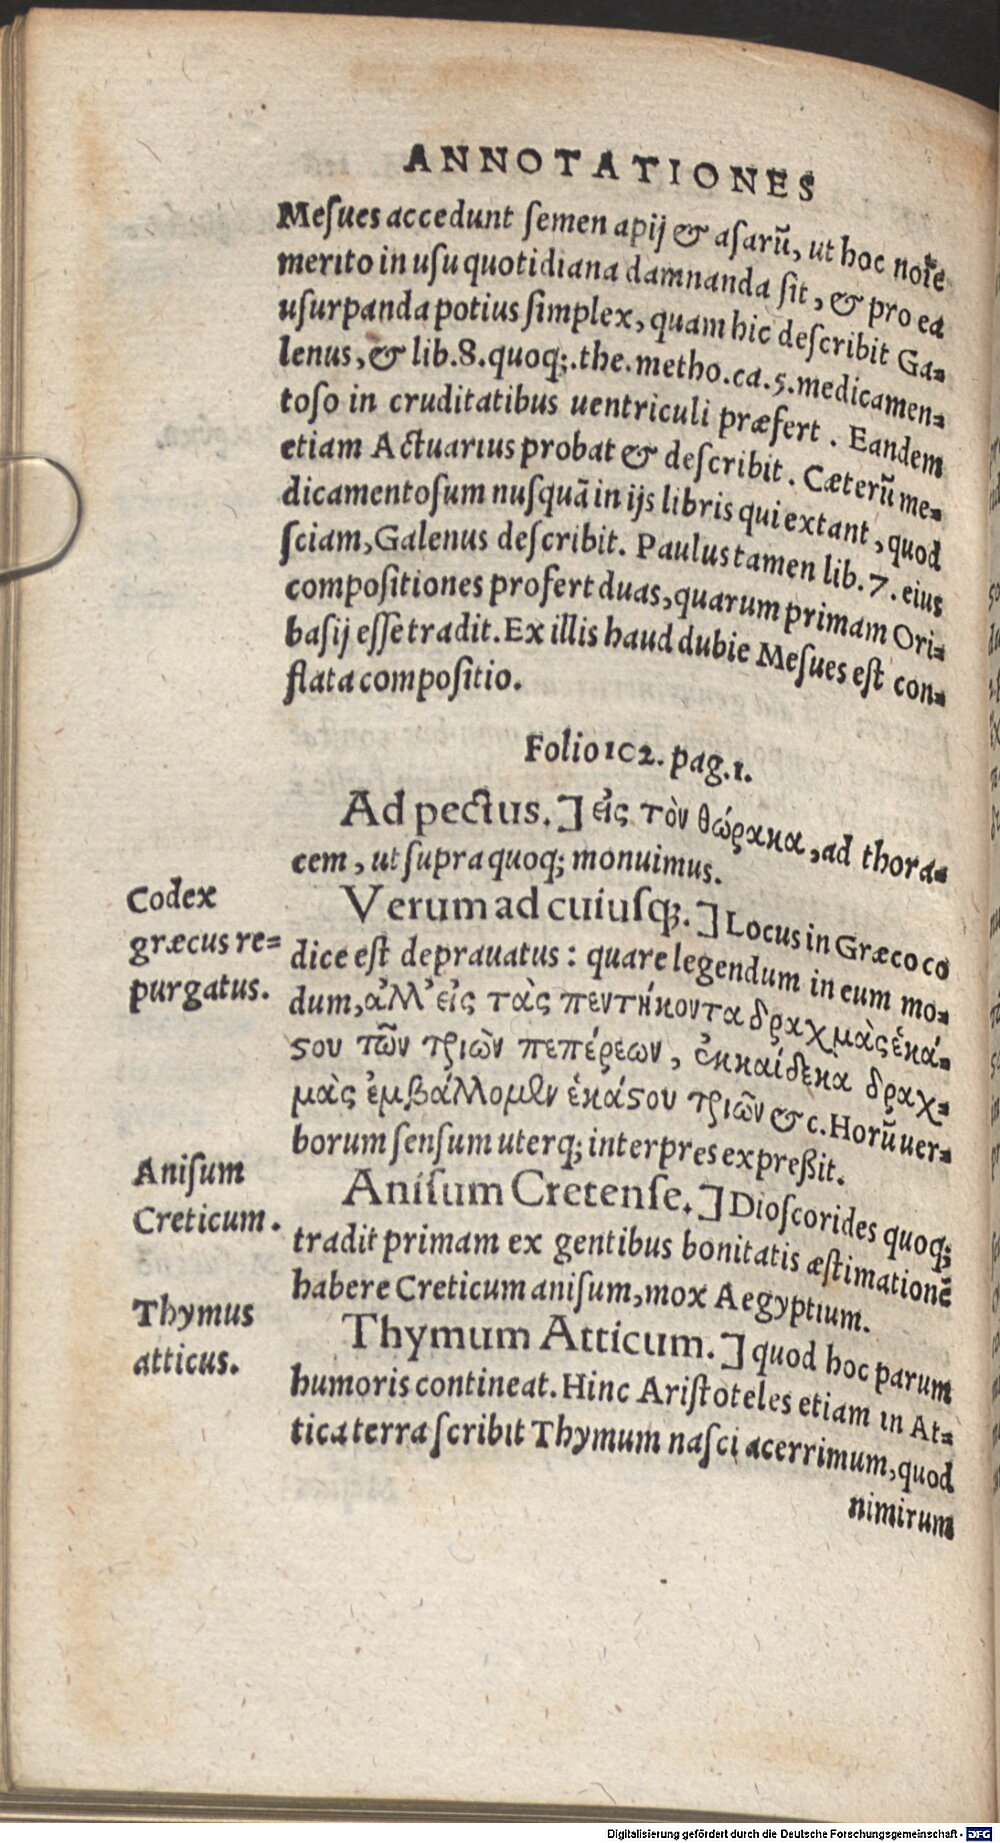 ANNOTATIONES
Meſues accedunt ſemen apij & aſarũ, ut hoc noĩe
merito in uſu quotidiana damnanda ſit, & pro ea
uſurpanda potius ſimplex, quam hic deſcribit Ga-
lenus, & lib. 8. quoq;. the. metho. ca. 5. medicamen-
toſo in cruditatibus uentriculi præfert. Eandem
etiam Actuarius probat & deſcribit. Cæterũ me-
dicamentoſum nuſquã in ijs libris qui extant, quod
ſciam, Galenus deſcribit. Paulus tamen lib. 7. eius
compoſitiones profert duas, quarum primam Ori-
baſij eſſe tradit. Ex illis haud dubie Meſues eſt con-
flata compoſitio.
Folio 102. pag. 1.
Ad pectus.] εἰς τὸν θώρακα, ad thora-
cem, ut ſupra quoq; monuimus.
Codex
græcus re-
purgatus.
Verum ad cuiuſq;.] Locus in Græco co
dice eſt deprauatus: quare legendum in eum mo-
dum, ἀλλ' εἰς τὰς πεντήκοντα δραχμὰς ἑκά-
ϛου τῶν τριὼν πεπέρεων, ἑκκαίδεκα δραχ-
μὰς ἐμβάλλομεν ἑκάϛου τριῶν & c. Horũ uer-
borum ſenſum uterq; interpres expreßit.
Aniſum
Creticum.
Aniſum Cretenſe.] Dioſcorides quoq;
tradit primam ex gentibus bonitatis æſtimationẽ
habere Creticum aniſum, mox Aegyptium.
Thymus
atticus.
Thymum Atticum.] quod hoc parum
humoris contineat. Hinc Ariſtoteles etiam in At-
tica terra ſcribit Thymum naſci acerrimum, quod
nimirum
Digitalisierung gefördert durch die Deutsche Forschungsgemeinschaft - DFG